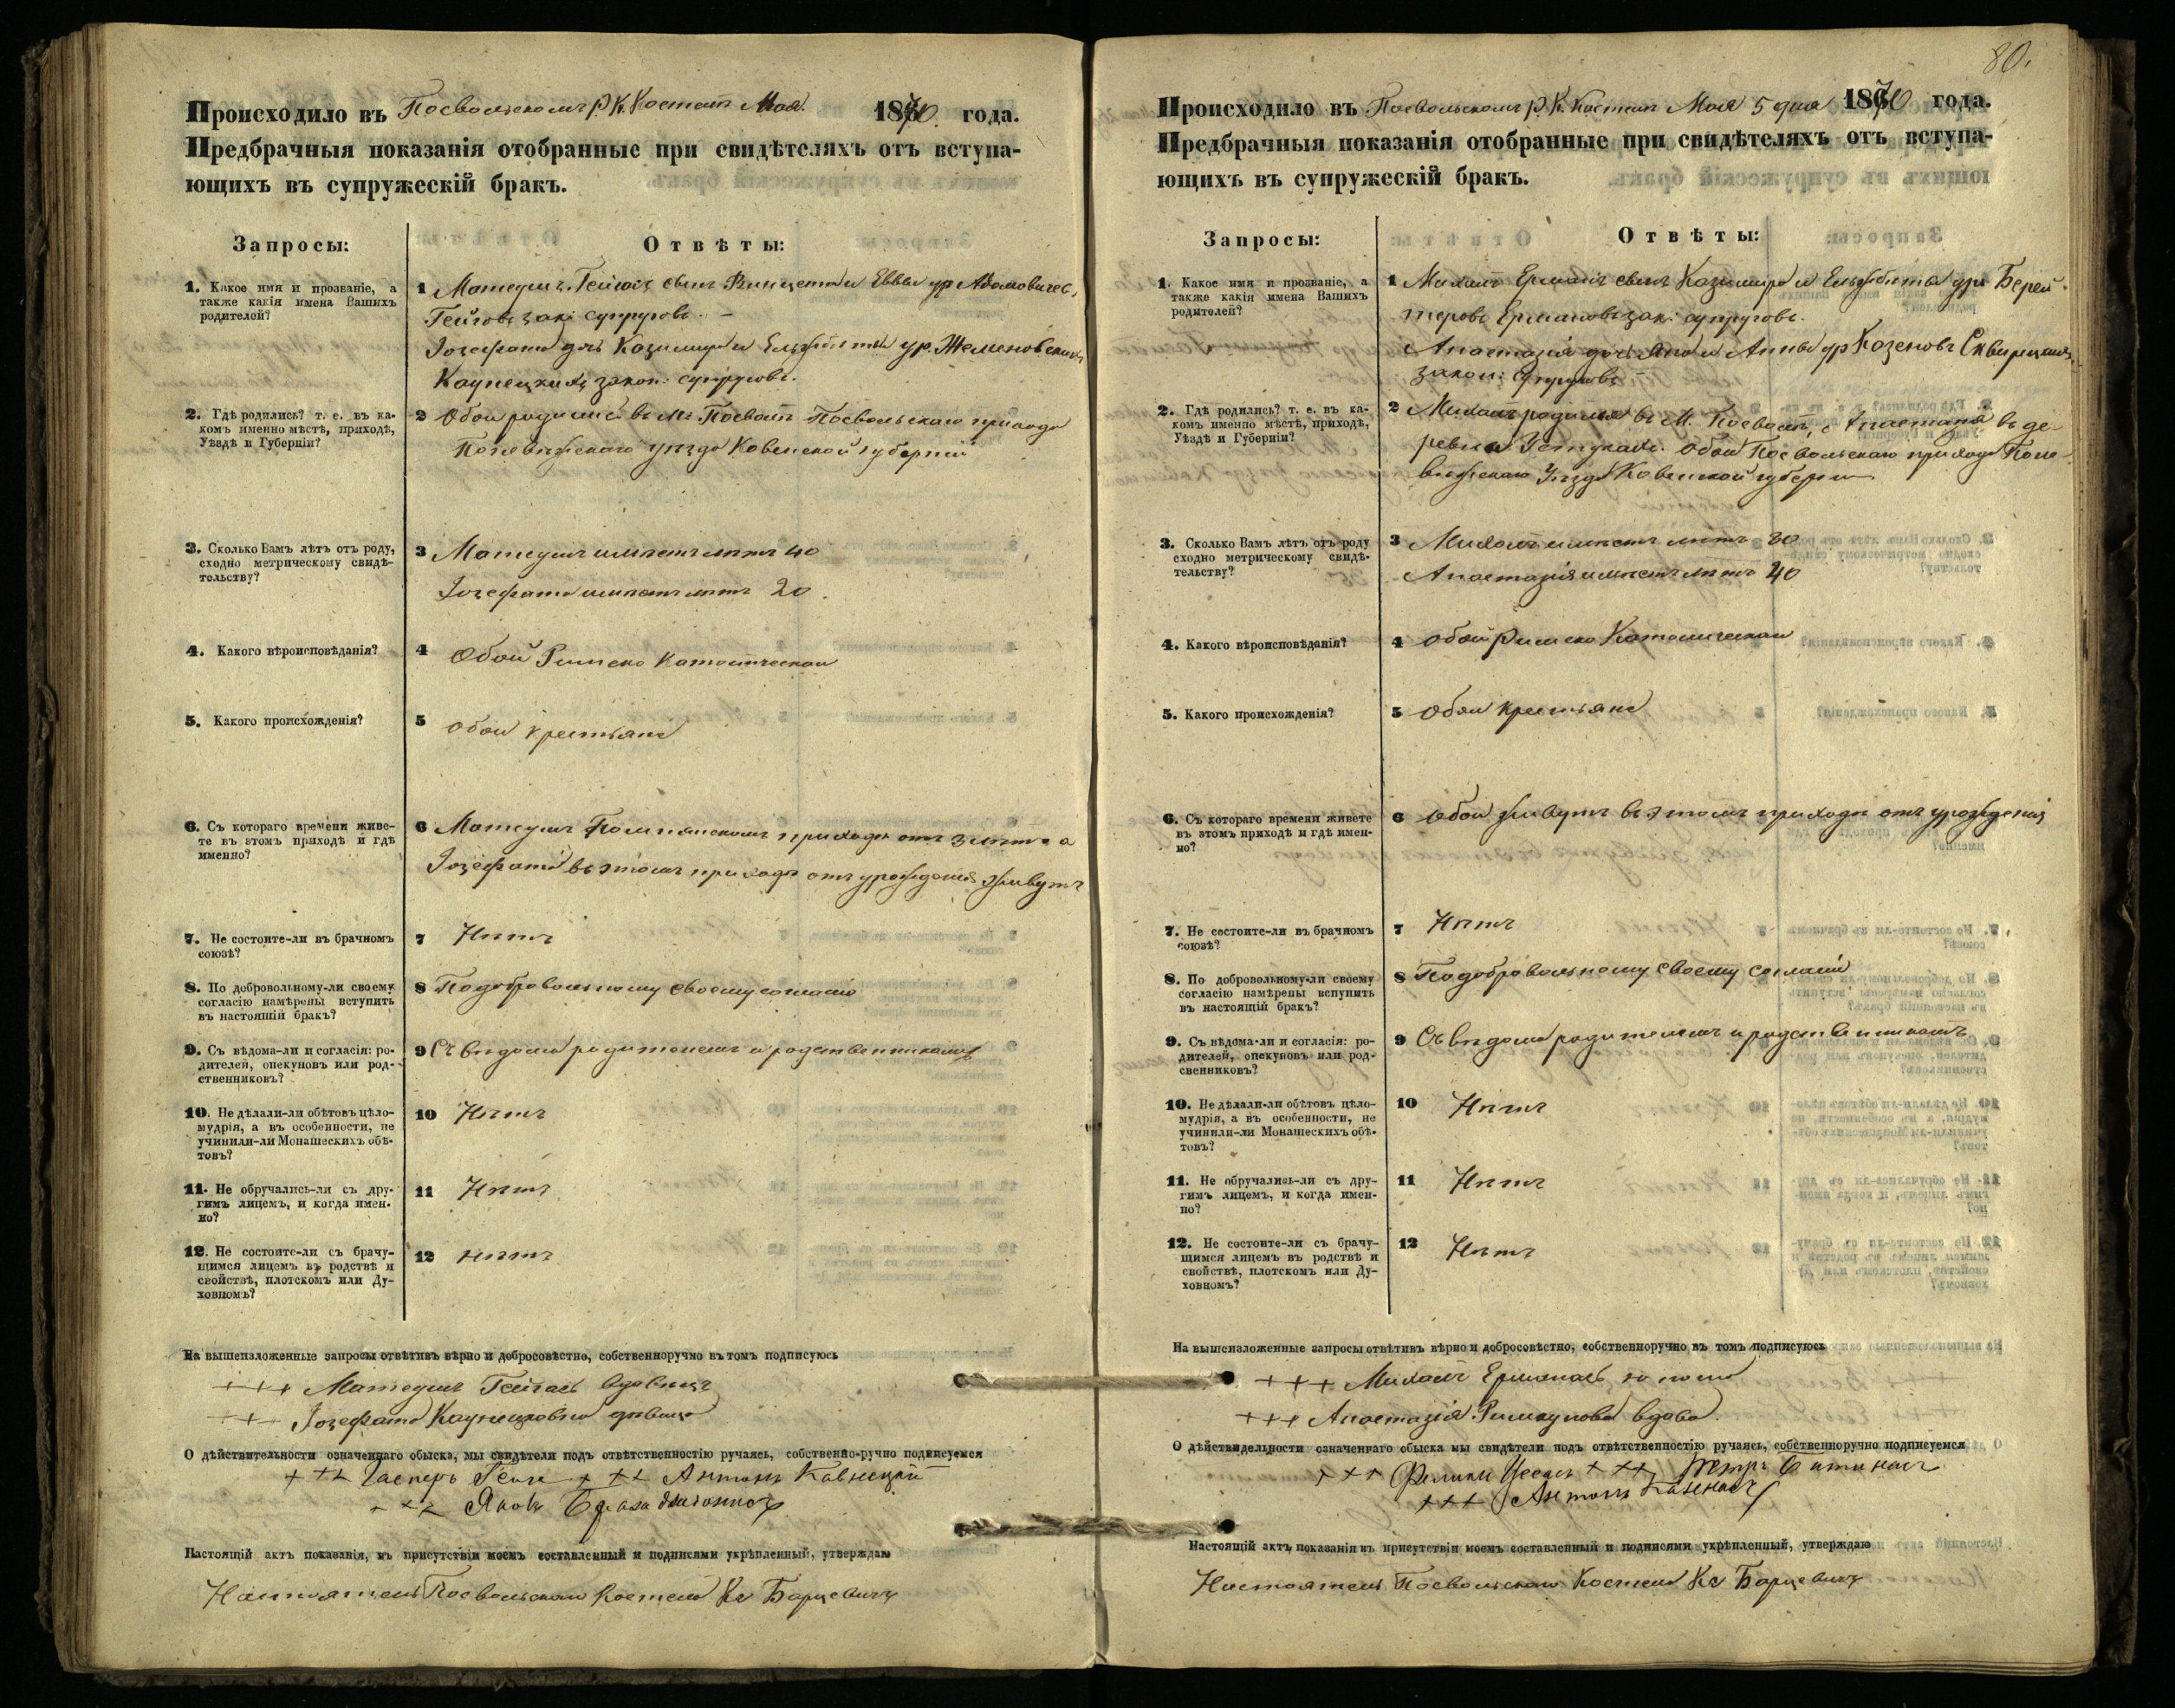 Происходило въ Посвольскомъ Р. К. Костелѣ Мая 1870. года.
Предбрачныя показанія отобранные при свидѣтеляхъ отъ вступа-
ющихъ въ супружескій бракъ.
Запросы: Отвѣты:
1. Какое имя и прозваніе, а
также какія имена Вашихъ
родителей?
1 Матеушъ Гейгасъ сынъ Винцента и Еввы ур Адамовичев.
Гейговъ зак: супруговъ. –
Іозефата дочь Казимира и Ельжбѣты ур.
закон: супруговъ.
2. Гдѣ родились? т. е. въ ка-
комъ именно мѣстѣ, приходѣ,
Уѣздѣ и Губерніи?
2 Обои родились въ М. Посволѣ Посвольскаго прихода
Поневѣжскаго уѣзда Ковенской губерніи
3. Сколько Вамъ лѣтъ отъ роду,
сходно метрическому свидѣ-
тельству?
3 Матеушъ имѣетъ лѣтъ 40
Іозефата имѣетъ лѣтъ 20.
4. Какого вѣроисповѣданія?
4 Обои Римско Католическаи
5. Какого происхожденія?
5 Обои крестьяне
6. Съ котораго времени живе-
те въ этомъ приходѣ и гдѣ
именно?
6 Матеушъ приходѣ отъ а
Іозефата въ этомъ приходѣ отъ урожденія живутъ
7. Не состоите-ли въ брачномъ
союзѣ?
7 Нѣтъ
8. По добровольному-ли своему
согласію намѣрены вступить
въ настоящій бракъ?
8 По добровольному своему согласію
9. Съ вѣдома-ли и согласія: ро-
дителей, опекуновъ или род-
ственниковъ?
9 Съ вѣдома родителемъ и родственникамъ
10. Не дѣлали-ли обѣтовъ цѣло-
мудрія, а въ особенности, не
учинили-ли Монашескихъ обѣ-
товъ?
10 Нѣтъ
11. Не обручались-ли съ дру-
гимъ лицемъ, и когда имен-
но?
11 Нѣтъ
12. Не состоите-ли съ брачу-
щимся лицемъ въ родствѣ и
свойствѣ, плотскомъ или Ду-
ховномъ?
12 Нѣтъ
На вышеизложенные запросы отвѣтивъ вѣрно и добросовѣстно, собственноручно въ томъ подписуюсь
+++ Матеушъ Гейгасъ вдовецъ
+++ Іозефата дѣвица
О дѣйствительности означеннаго обыска, мы свидѣтели подъ отвѣтственностію ручаясь, собственно-ручно подписуемся
+++ Гасперъ +++ Антонъ Кавнецкій
+++ Яковъ
Настоящій актъ показанія, въ присутствіи моемъ составленный и подписями укрѣпленный, утверждаю
Настоятель Посвольскаго Костела Кс Барцевичъ
80.
Происходило въ Посвольскомъ Р. К. Костелѣ Мая 5 дня 1870 года.
Предбрачныя показанія отобранные при свидѣтеляхъ отъ вступа-
ющихъ въ супружескій бракъ.
Запросы: Отвѣты:
1. Какое имя и прозваніе, а
также какія имена Вашихъ
родителей?
1 Михалъ Ерманъ сынъ Казимира и Ельжбѣты ур: Берей-
теровъ Ермановъ зак: супруговъ.
Анастазія дочь Яна и Анны ур Козеновъ
закон: супруговъ
2. Гдѣ родились? т. е. въ ка-
комъ именно мѣстѣ, приходѣ,
Уѣздѣ и Губерніи?
2 Михалъ родился въ М. Посволѣ, а Анастазія въ де-
ревнѣ Устукахъ. Обои Посвольскаго прихода Поне-
вѣжскаго Уѣзда Ковенской губерніи
3. Сколько Вамъ лѣтъ отъ роду
сходно метрическому свидѣ-
тельству?
3 Михалъ имѣетъ лѣтъ
Анастазія имѣетъ лѣтъ 40
4. Какого вѣроисповѣданія?
4 Обои Римско Католическаи
5. Какого происхожденія?
5 Обои крестьяне
6. Съ котораго времени живете
въ этомъ приходѣ и гдѣ имен-
но?
6 Обои живутъ въ этомъ приходѣ отъ урожденія
7. Не состоите-ли въ брачномъ
союзѣ?
7 Нѣтъ
8. По добровольному-ли своему
согласію намѣрены вспупить
въ настоящій бракъ?
8 По добровольному своему согласіи
9. Съ вѣдома-ли и согласія: ро-
дителей, опекуновъ или род-
свенниковъ?
9 Съ вѣдома родителемъ и родственникамъ
10. Не дѣлали-ли обѣтовъ цѣло-
мудрія, а въ особенности, не
учинили-ли Монашескихъ обѣ-
товъ?
10 Нѣтъ
11. Не обручались-ли съ дру-
гимъ лицемъ, и когда имен-
но?
11 Нѣтъ
12. Не состоите-ли съ брачу-
щимся лицемъ въ родствѣ и
свойствѣ, плотскомъ или Ду-
ховномъ?
12 Нѣтъ
На вышеизложенные запросы отвѣтивъ вѣрно и добросовѣстно, собственноручно въ томъ подписуюсь
+++ Михалъ Ерманасъ
+++ Анастазія вдова.
О дѣйствидельности означеннаго обыска мы свидѣтели подъ отвѣтственностію ручаясь, собственноручно подписуемся
+++ Феликсъ +++ Петръ
+++ Антонъ Казенасъ
Настоящій актъ показанія въ присутствіи моемъ составленный и подписями укрѣпленный, утверждаю
Настоятель Посвольскаго Костела Кс Барцевичъ